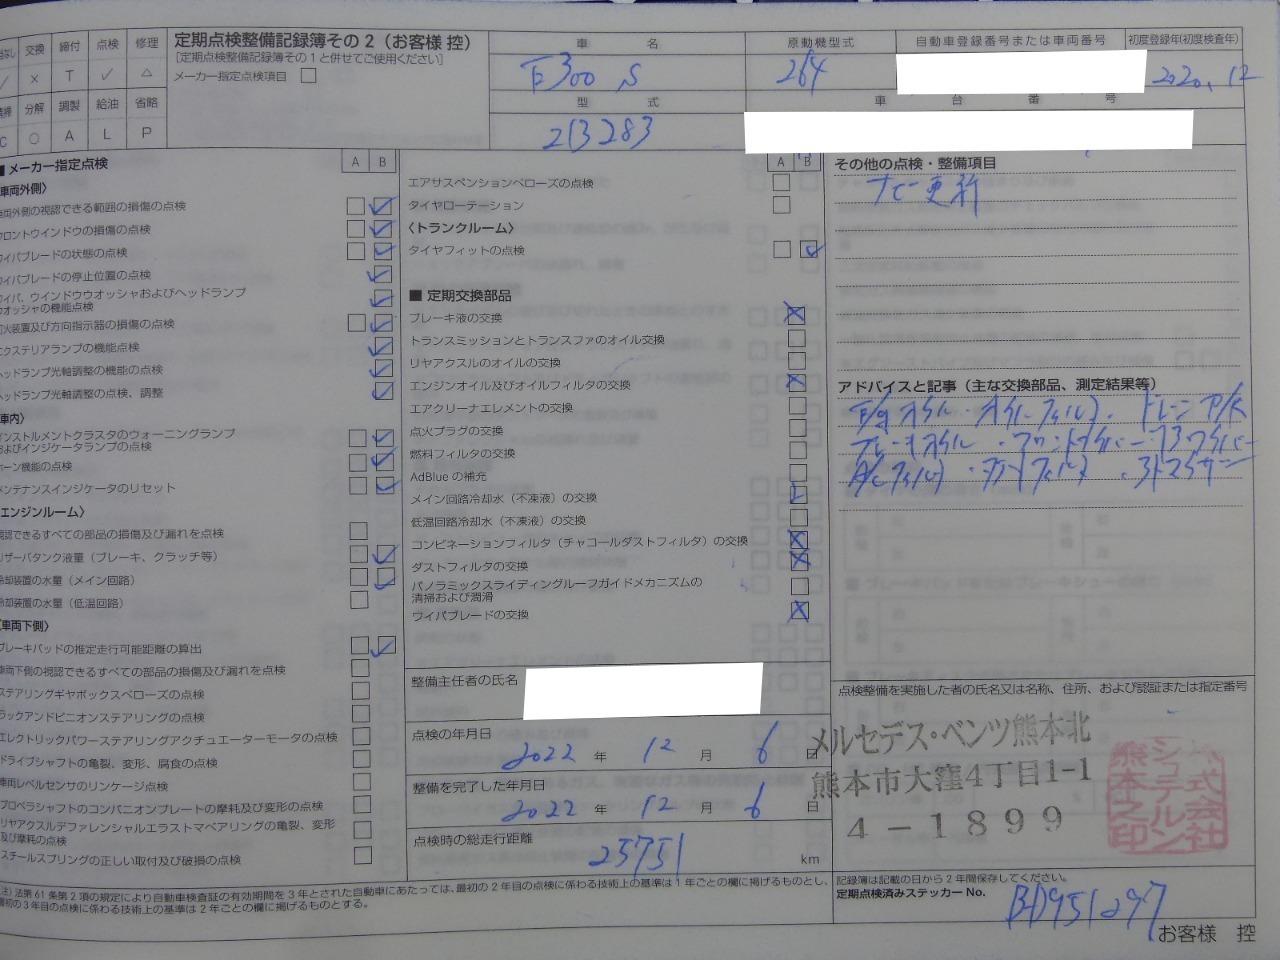 交換 締付 点検 修理
／ × T ✓ △
分解 調製 給油 省略
C ○ A L P
定期点検整備記録簿その2（お客様 控）
［定期点検整備記録簿その1と併せてご使用ください］
メーカー指定点検項目 □
車 名
E300 S
原動機型式
264
自動車登録番号または車両番号
初度登録年(初度検査年)
2020.12
型 式
213283
車 台 番 号
■ メーカー指定点検 A B
車両外側〉
車両外側の視認できる範囲の損傷の点検
フロントウインドウの損傷の点検
ワイパブレードの状態の点検
ワイパブレードの停止位置の点検
ワイパ、ウインドウウオッシャおよびヘッドランプ
ウオッシャの機能点検
灯火装置及び方向指示器の損傷の点検
エクステリアランプの機能点検
ヘッドランプ光軸調整の機能の点検
ヘッドランプ光軸調整の点検、調整
車内〉
インストルメントクラスタのウォーニングランプ
およびインジケータランプの点検
ホーン機能の点検
メンテナンスインジケータのリセット
エンジンルーム〉
視認できるすべての部品の損傷及び漏れを点検
リザーバタンク液量（ブレーキ、クラッチ等）
冷却装置の水量（メイン回路）
冷却装置の水量（低温回路）
車両下側〉
ブレーキパッドの推定走行可能距離の算出
車両下側の視認できるすべての部品の損傷及び漏れを点検
ステアリングギヤボックスベローズの点検
ラックアンドピニオンステアリングの点検
エレクトリックパワーステアリングアクチュエーターモータの点検
ドライブシャフトの亀裂、変形、腐食の点検
車両レベルセンサのリンケージ点検
プロペラシャフトのコンパニオンプレートの摩耗及び変形の点検
リヤアクスルデファレンシャルエラストマベアリングの亀裂、変形
及び摩耗の点検
スチールスプリングの正しい取付及び破損の点検
A B
エアサスペンションベローズの点検
タイヤローテーション
〈トランクルーム〉
タイヤフィットの点検
■ 定期交換部品
ブレーキ液の交換
トランスミッションとトランスファのオイル交換
リヤアクスルのオイルの交換
エンジンオイル及びオイルフィルタの交換
エアクリーナエレメントの交換
点火プラグの交換
燃料フィルタの交換
AdBlueの補充
メイン回路冷却水（不凍液）の交換
低温回路冷却水（不凍液）の交換
コンビネーションフィルタ（チャコールダストフィルタ）の交換
ダストフィルタの交換
パノラミックスライディングルーフガイドメカニズムの
清掃および潤滑
ワイパブレードの交換
整備主任者の氏名
点検の年月日
2022 年 12 月 6 日
整備を完了した年月日
2022 年 12 月 6 日
点検時の総走行距離
25751 km
その他の点検・整備項目
ナビ更新
アドバイスと記事（主な交換部品、測定結果等）
E/gオイル・オイルフィルタ・ドレンP/K
ブレーキオイル・フロントワイパー
A/Cフィルタ・ダストフィルタ
点検整備を実施した者の氏名又は名称、住所、および認証または指定番号
メルセデス・ベンツ熊本北
熊本市大窪4丁目1-1
4-1899
株式会社
シュテルン
熊本之印
記録簿は記載の日から2年間保存してください。
定期点検済みステッカー No. BD951297
注）法第61条第2項の規定により自動車検査証の有効期間を3年とされた自動車にあたっては、最初の2年目の点検に係わる技術上の基準は1年ごとの欄に掲げるものとし、
最初の3年目の点検に係わる技術上の基準は2年ごとの欄に掲げるものとする。
お客様 控